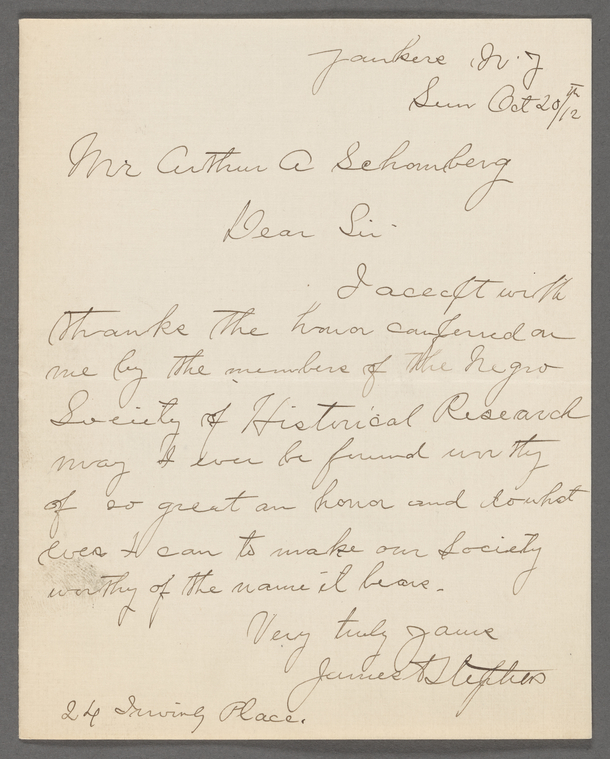 Yonkers, N.Y
Sun Oct 20th/12
Mr Arthur A Schomberg
Dear Sir
I accept with
thanks the honor conferred on
me by the members of the Negro
Society of Historical Research
may I ever be found worthy
of so great an honor and do what
ever I can to make our Society
worthy of the name it bears.
Very truly yours
James Stephens
24 Irving Place.